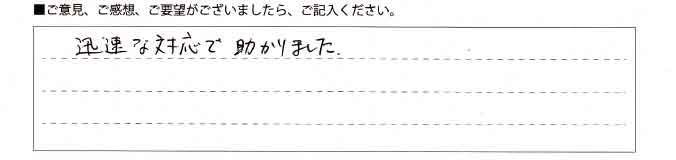 ■ご意見、ご感想、ご要望がございましたら、ご記入ください。
迅速な対応で助かりました.